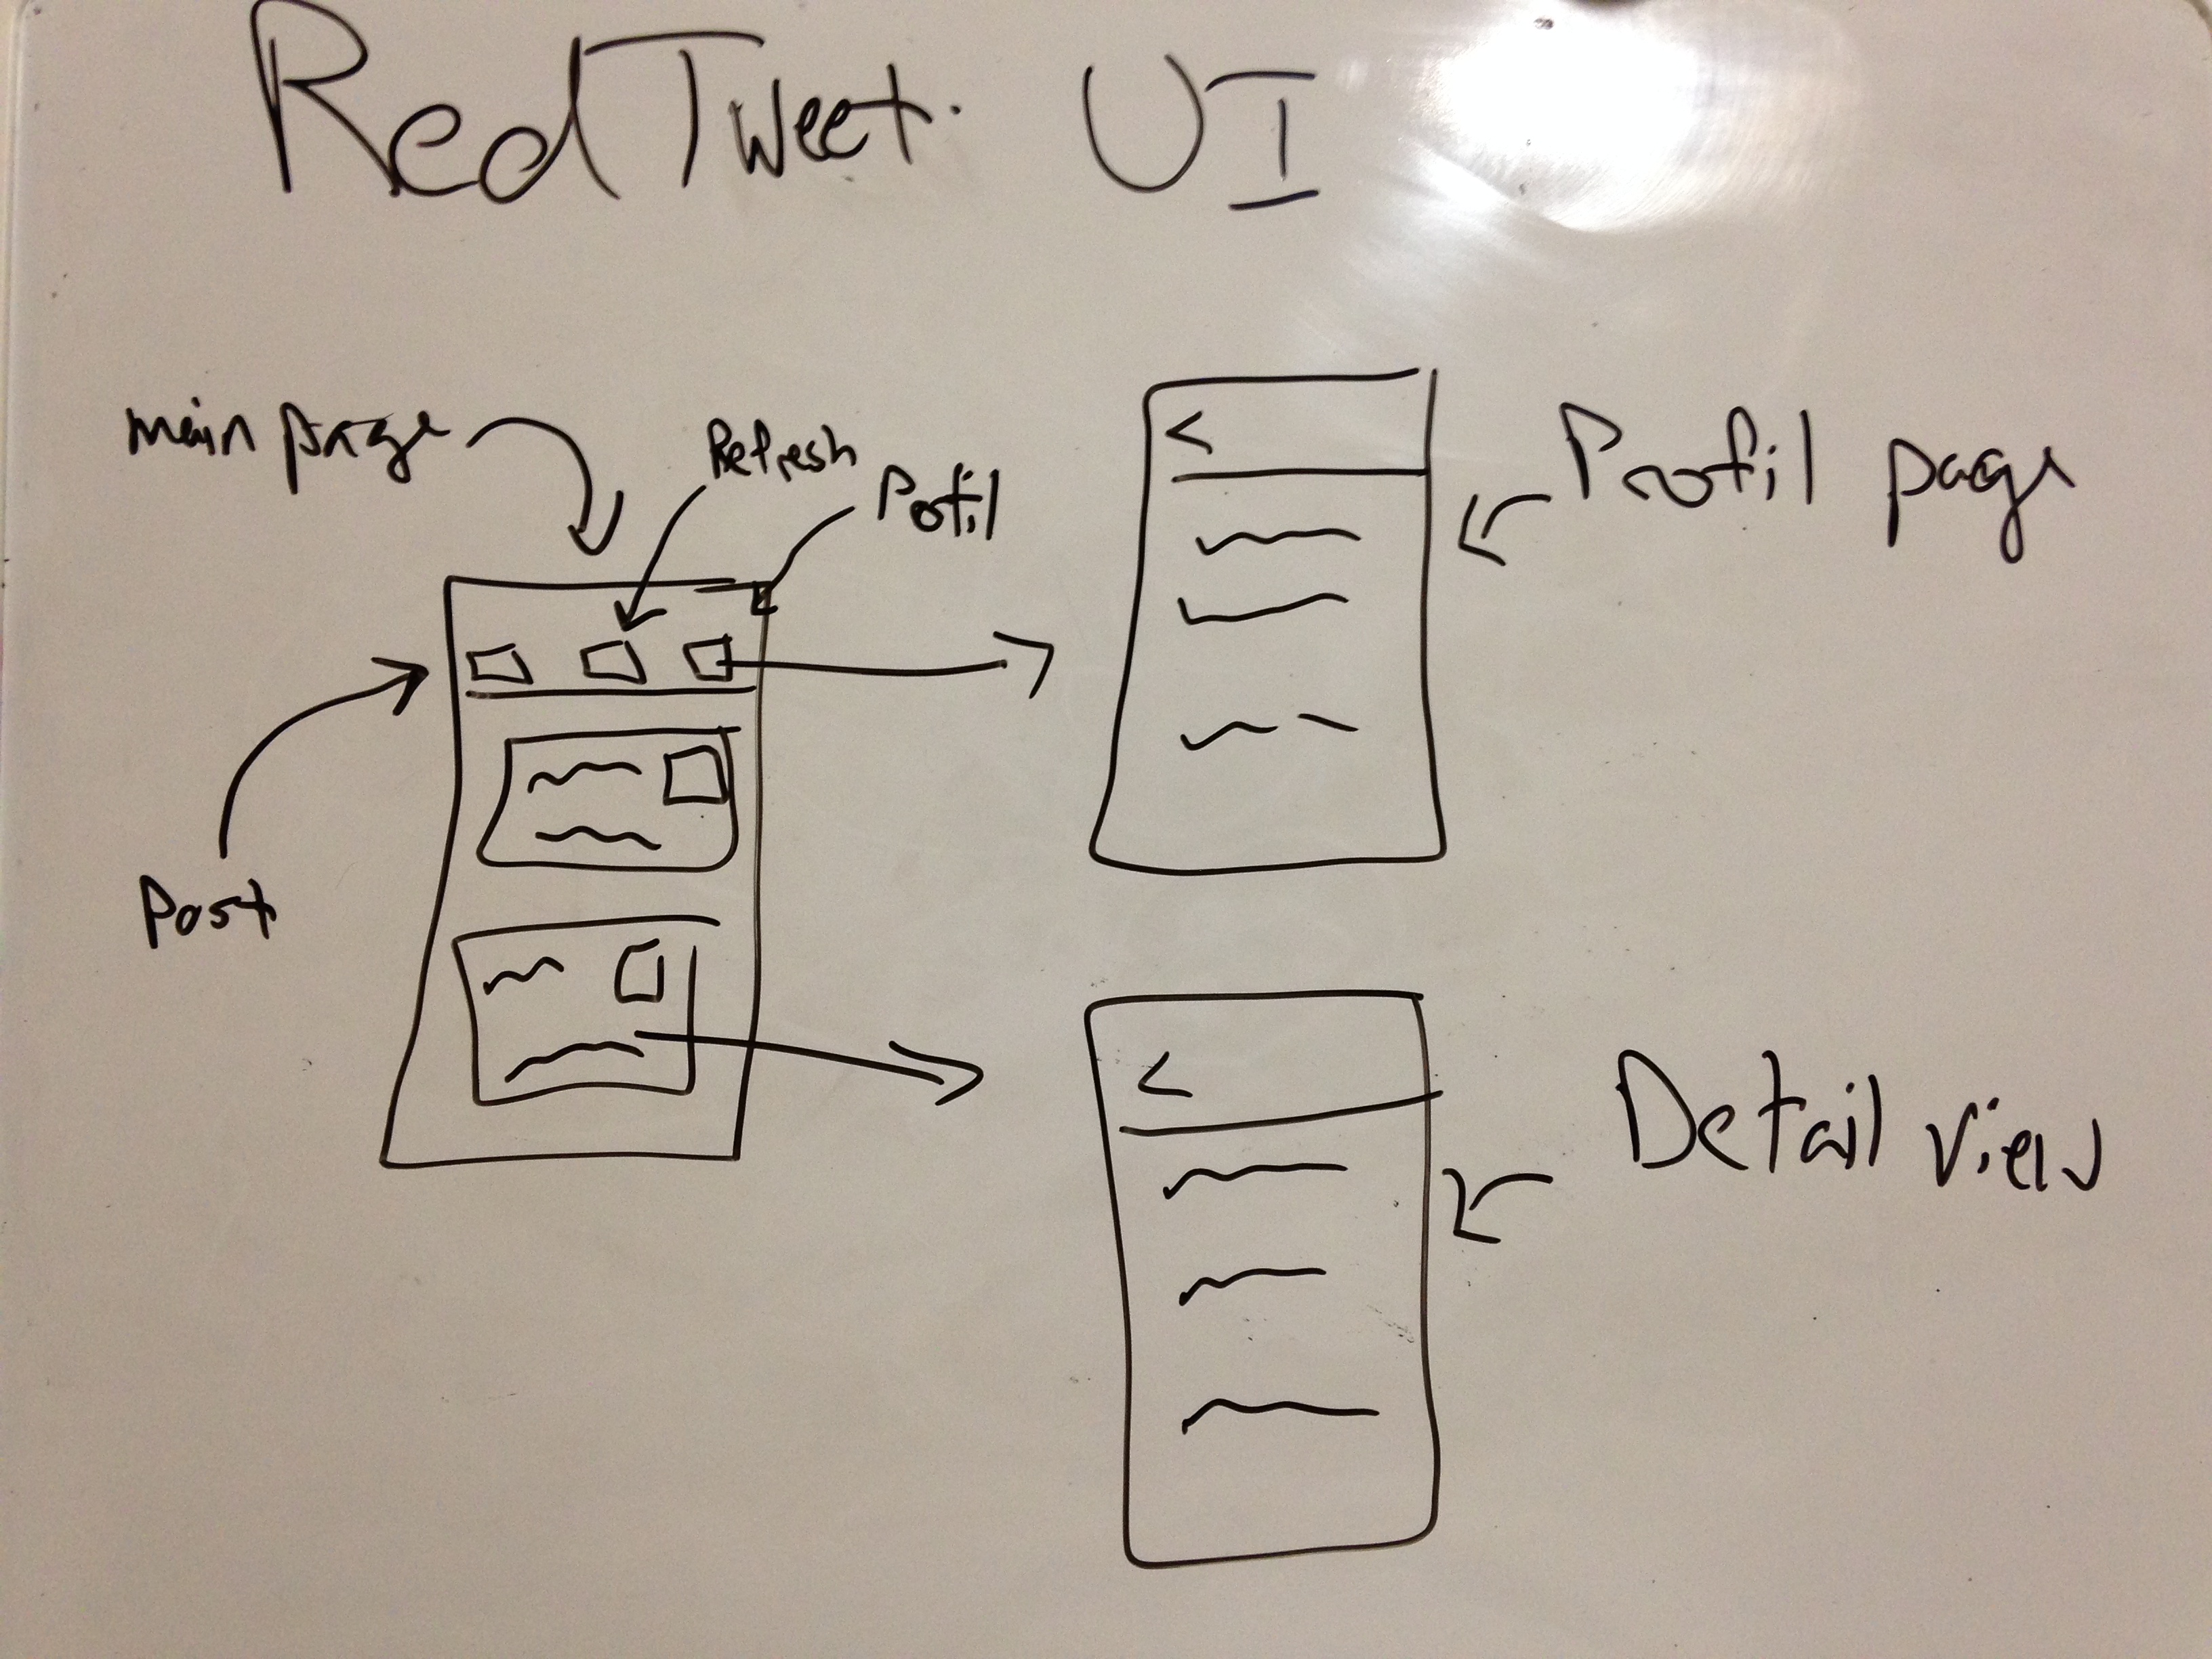 RedTweet: UI
main page
Refresh
Pofil
Post
Pofil page
Detail View